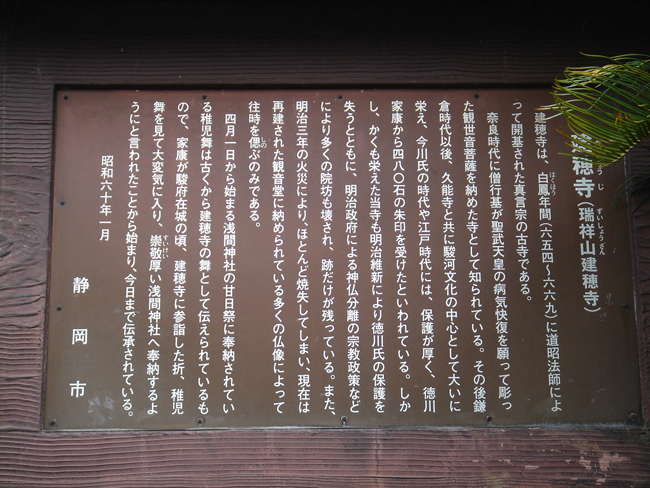 建穂寺(瑞祥山建穂寺)
建穂寺は、白鳳年間(六五四~六六九)に道昭法師によ
って開基された真言宗の古寺である。
奈良時代に僧行基が聖武天皇の病気快復を願って彫っ
た観世音菩薩を納めた寺として知られている。その後鎌
倉時代以後、久能寺と共に駿河文化の中心として大いに
栄え、今川氏の時代や江戸時代には、保護が厚く、徳川
家康から四八〇石の朱印を受けたといわれている。しか
し、かくも栄えた当寺も明治維新により徳川氏の保護を
失うとともに、明治政府による神仏分離の宗教政策など
により多くの院坊も壊され、跡だけが残っている。また、
明治三年の火災により、ほとんど焼失してしまい、現在は
再建された観音堂に納められている多くの仏像によって
往時を偲ぶのみである。
四月一日から始まる浅間神社の廿日祭に奉納されてい
る稚児舞は古くから建穂寺の舞として伝えられているも
ので、家康が駿府在城の頃、建穂寺に参詣した折、稚児
舞を見て大変気に入り、崇敬厚い浅間神社へ奉納するよ
うにと言われたことから始まり、今日まで伝承されている。
昭和六十年一月
静岡市